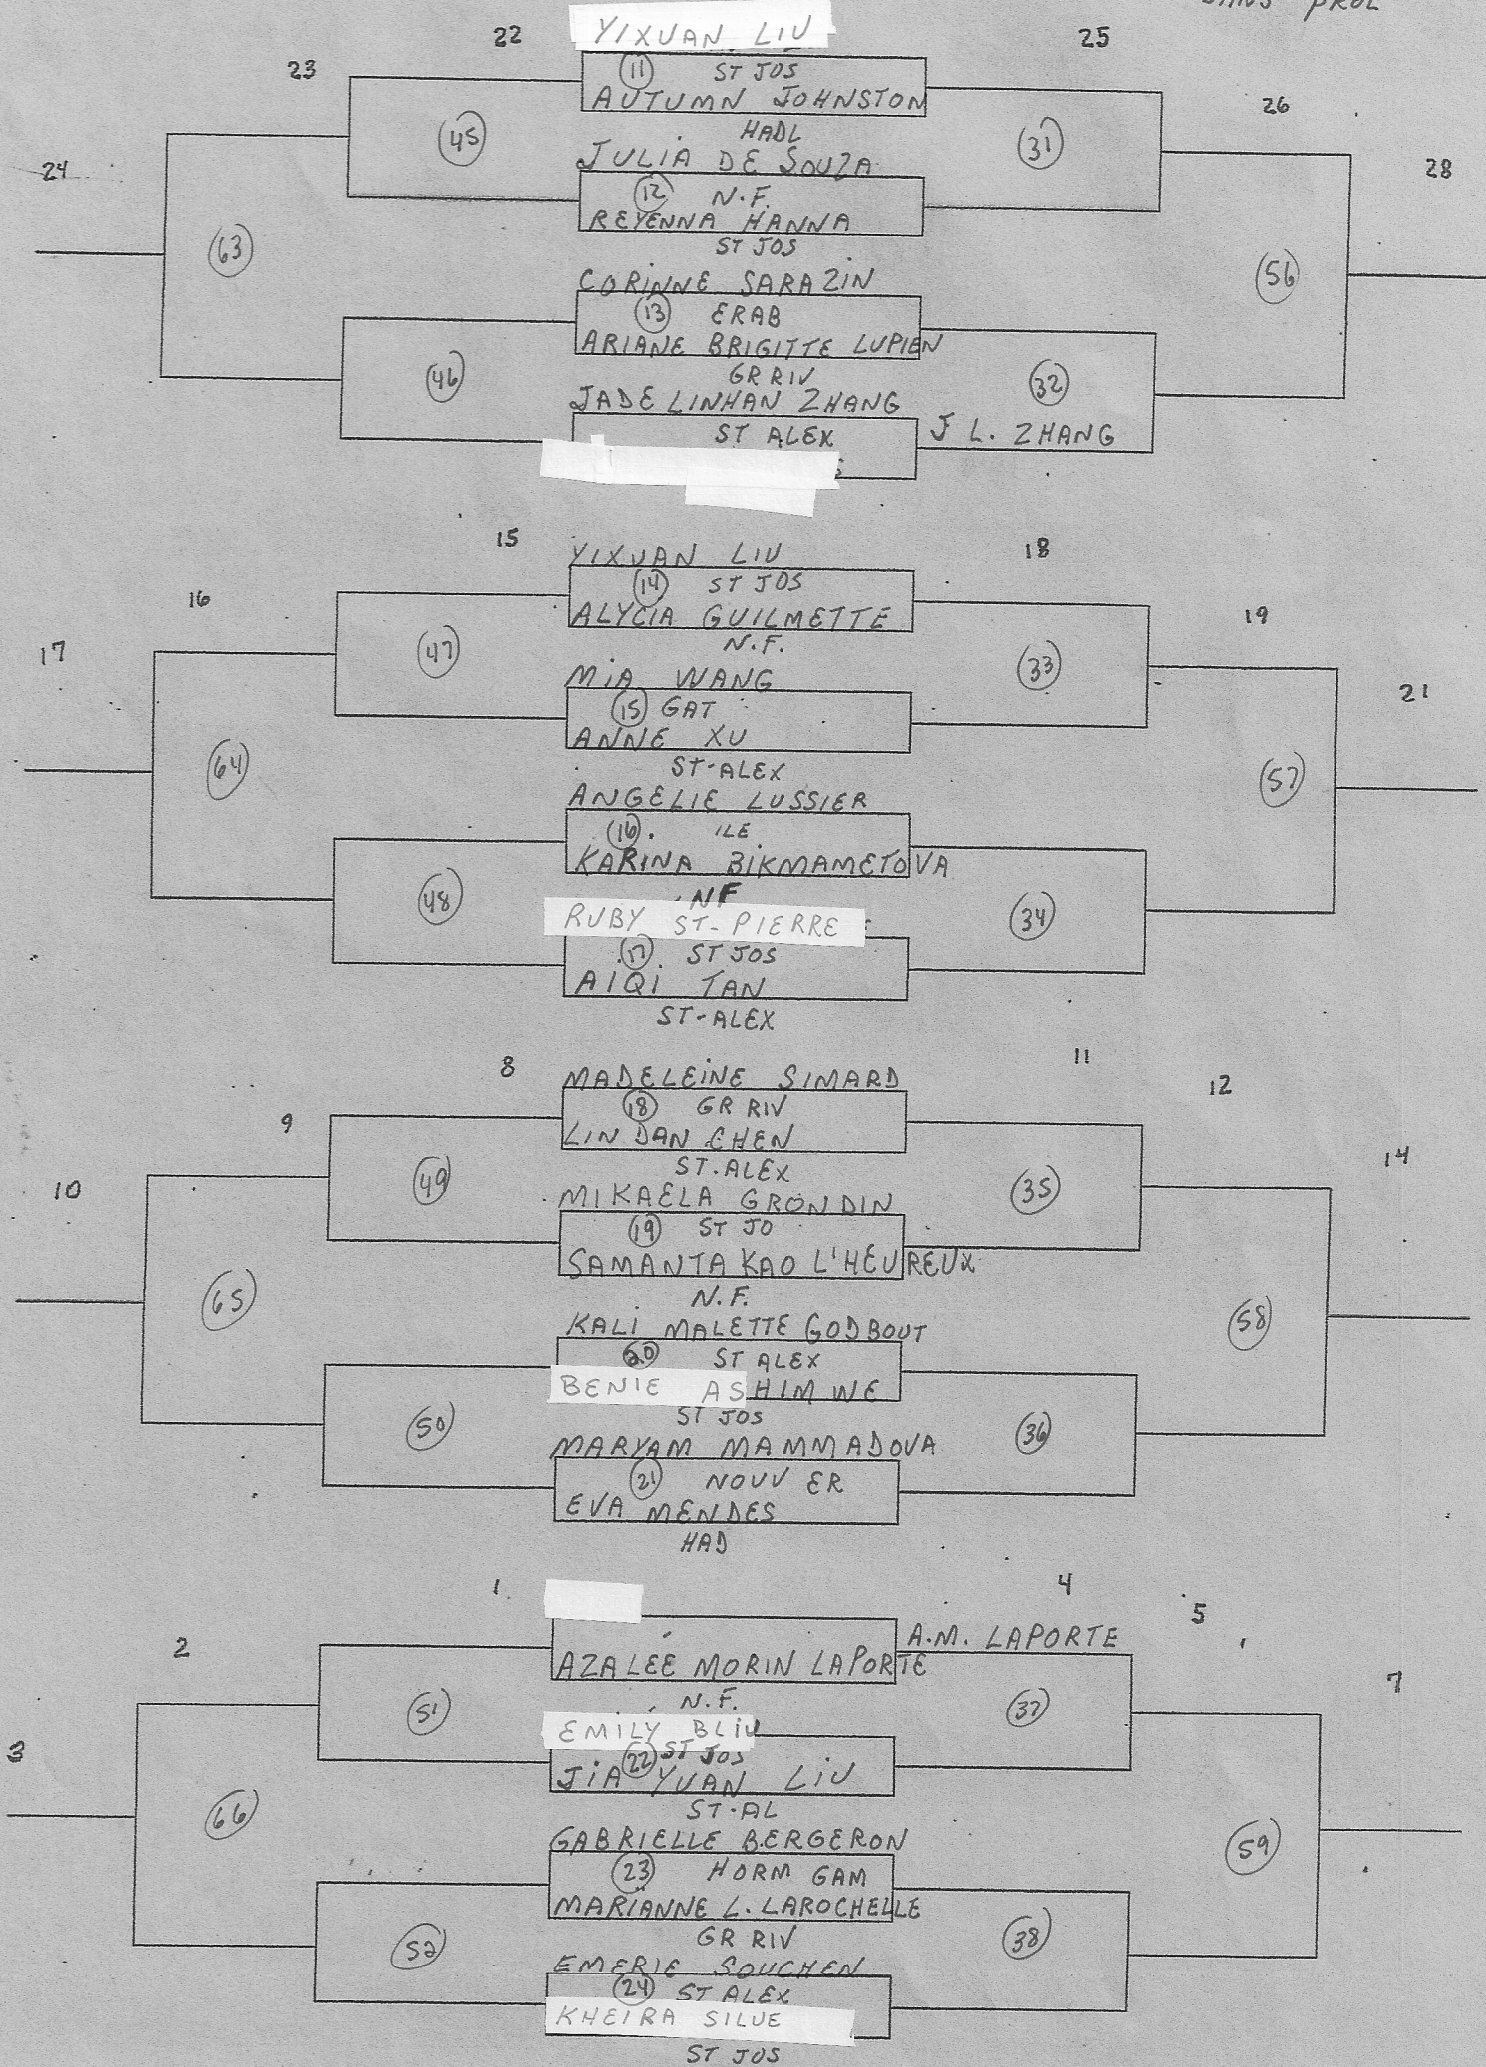 DANS PROL
YIXUAN LIU
22
25
11 ST JOS
23
AUTUMN JOHNSTON
26
HADL
45
31
JULIA DE SOUZA
24
28
12 N.F.
REYENNA HANNA
ST JOS
63
56
CORINNE SARAZIN
13 ERAB
ARIANE BRIGITTE LUPIEN
GR RIV
46
32
JADE LINHAN ZHANG
ST ALEX
J L. ZHANG
S
15
YIXUAN LIU
18
14 ST JOS
16
ALYCIA GUILMETTE
19
N.F.
17
47
33
MIA WANG
21
15 GAT
ANNE XU
ST-ALEX
64
57
ANGELIE LUSSIER
16. ILE
KARINA BIKMAMETOVA
NF
48
34
RUBY ST-PIERRE
17 ST JOS
AIQI TAN
ST-ALEX
8
MADELEINE SIMARD
11
12
18 GR RIV
9
LIN DAN CHEN
14
ST.ALEX
10
49
35
MIKAELA GRONDIN
19 ST JO
SAMANTA KAO L'HEUREUX
N.F.
65
58
KALI MALETTE GODBOUT
20 ST ALEX
BENIE ASHIMWE
ST JOS
50
36
MARYAM MAMMADOVA
21 NOUV ER
EVA MENDES
HAD
1
4
5
2
A.M. LAPORTE
AZALEE MORIN LAPORTE
7
N.F.
51
37
3
EMILY BLIU
22 ST JOS
JIA YUAN LIU
ST-AL
66
59
GABRIELLE BERGERON
23 HORM GAM
MARIANNE L. LAROCHELLE
GR RIV
52
38
EMERIE SOUCHEN
24 ST ALEX
KHEIRA SILUE
ST JOS